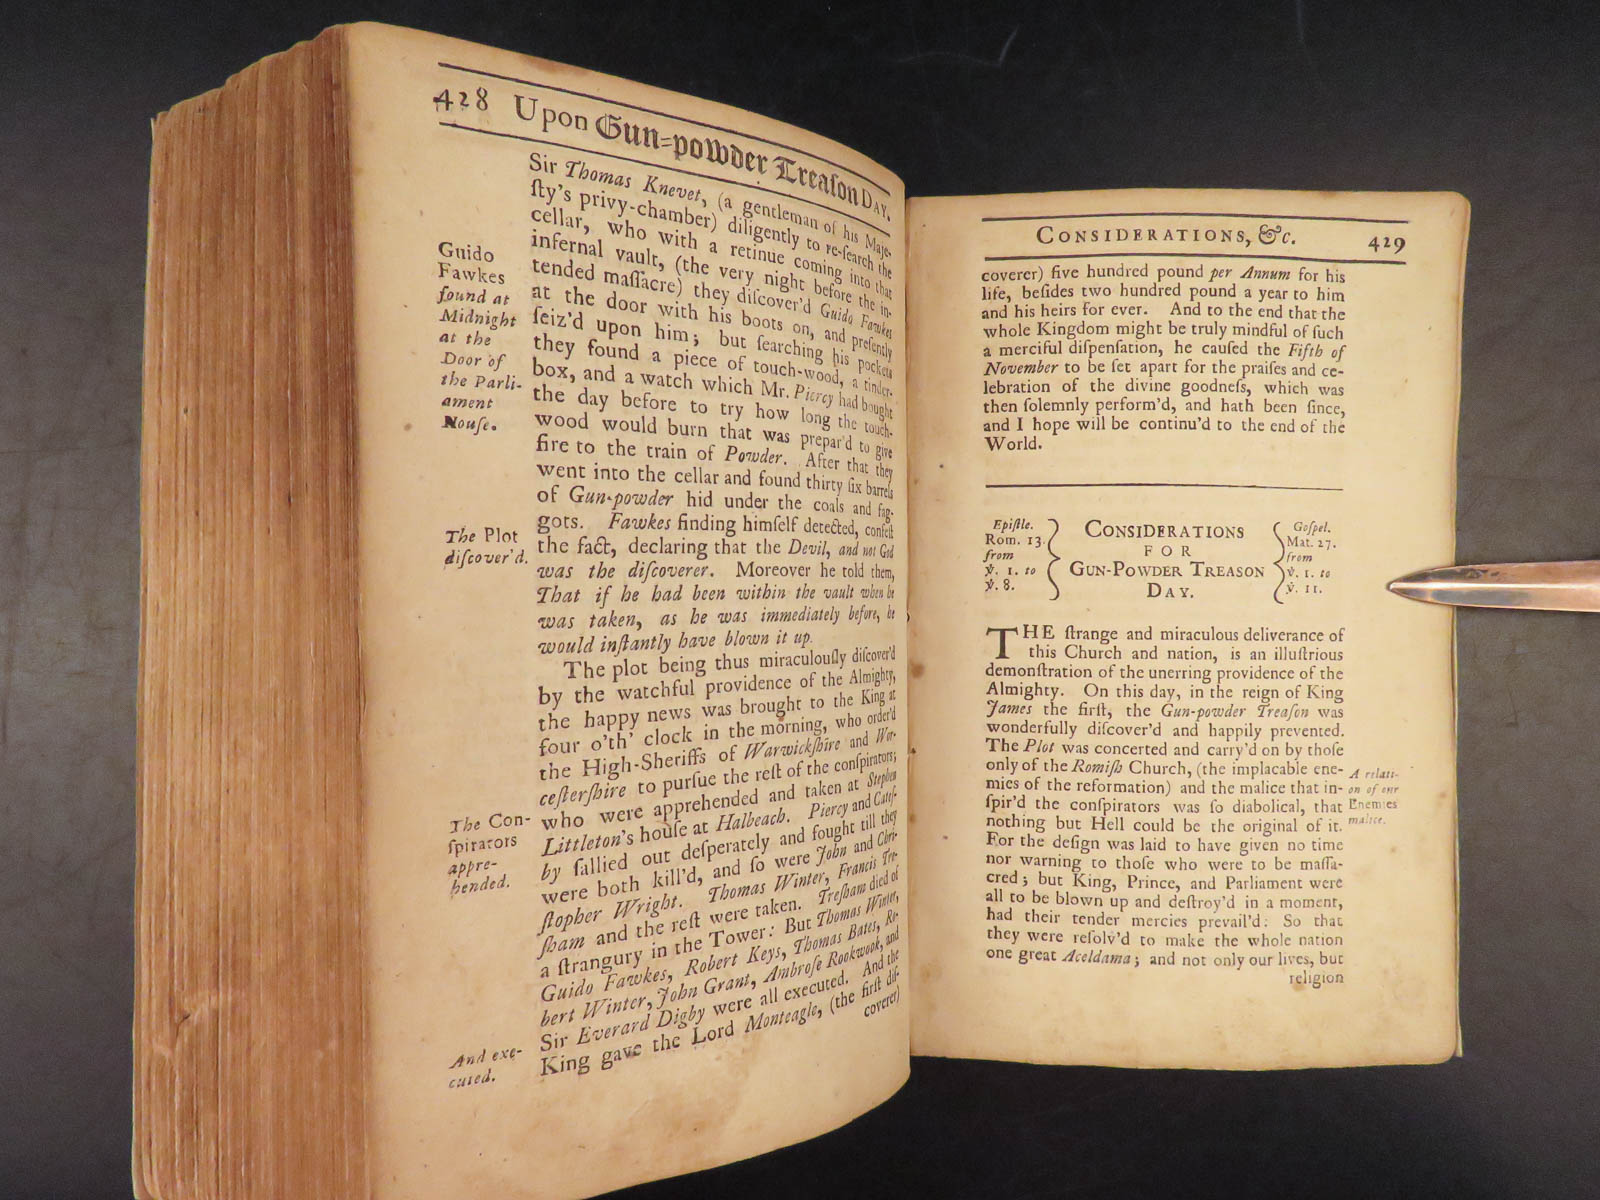 428 Upon Gun-powder Treaſon Day.
Sir Thomas Knevet, (a gentleman of his Maje-
ſty's privy-chamber) diligently to re-ſearch the
cellar, who with a retinue coming into that
infernal vault, (the very night before the in-
tended maſſacre) they diſcover'd Guido Fawkes
at the door with his boots on, and preſently
ſeiz'd upon him; but ſearching his pockets
they found a piece of touch-wood, a tinder-
box, and a watch which Mr. Piercy had bought
the day before to try how long the touch-
wood would burn that was prepar'd to give
fire to the train of Powder. After that they
went into the cellar and found thirty ſix barrels
of Gun-powder hid under the coals and fag-
gots. Fawkes finding himſelf detected, confeſt
the fact, declaring that the Devil, and not God
was the diſcoverer. Moreover he told them,
That if he had been within the vault when he
was taken, as he was immediately before, he
would inſtantly have blown it up.
The plot being thus miraculouſly diſcover'd
by the watchful providence of the Almighty,
the happy news was brought to the King at
four o'th' clock in the morning, who order'd
the High-Sheriffs of Warwickſhire and Wor-
ceſterſhire to purſue the reſt of the conſpirators;
who were apprehended and taken at Stephen
Littleton's houſe at Halbeach. Piercy and Cateſ-
by ſallied out deſperately and fought till they
were both kill'd, and ſo were John and Chri-
ſtopher Wright. Thomas Winter, Francis Tre-
ſham and the reſt were taken. Treſham died of
a ſtrangury in the Tower: But Thomas Winter,
Guido Fawkes, Robert Keys, Thomas Bates, Ro-
bert Winter, John Grant, Ambroſe Rookwook, and
Sir Everard Digby were all executed. And the
King gave the Lord Monteagle, (the firſt diſ-
coverer)
Guido
Fawkes
found at
Midnight
at the
Door of
the Parli-
ament
Houſe.
The Plot
diſcover'd.
The Con-
ſpirators
appre-
hended.
And exe-
cuted.
Considerations, &c. 429
coverer) five hundred pound per Annum for his
life, beſides two hundred pound a year to him
and his heirs for ever. And to the end that the
whole Kingdom might be truly mindful of ſuch
a merciful diſpenſation, he cauſed the Fifth of
November to be ſet apart for the praiſes and ce-
lebration of the divine goodneſs, which was
then ſolemnly perform'd, and hath been ſince,
and I hope will be continu'd to the end of the
World.
Epiſtle.
Rom. 13.
from
℣. 1. to
℣. 8.
Considerations
for
Gun-Powder Treason
Day.
Goſpel.
Mat. 27.
from
℣. 1. to
℣. 11.
THE ſtrange and miraculous deliverance of
this Church and nation, is an illuſtrious
demonſtration of the unerring providence of the
Almighty. On this day, in the reign of King
James the firſt, the Gun-powder Treaſon was
wonderfully diſcover'd and happily prevented.
The Plot was concerted and carry'd on by thoſe
only of the Romiſh Church, (the implacable ene-
mies of the reformation) and the malice that in-
ſpir'd the conſpirators was ſo diabolical, that
nothing but Hell could be the original of it.
For the deſign was laid to have given no time
nor warning to thoſe who were to be maſſa-
cred; but King, Prince, and Parliament were
all to be blown up and deſtroy'd in a moment,
had their tender mercies prevail'd: So that
they were reſolv'd to make the whole nation
one great Aceldama; and not only our lives, but
religion
A relati-
on of our
Enemies
malice.